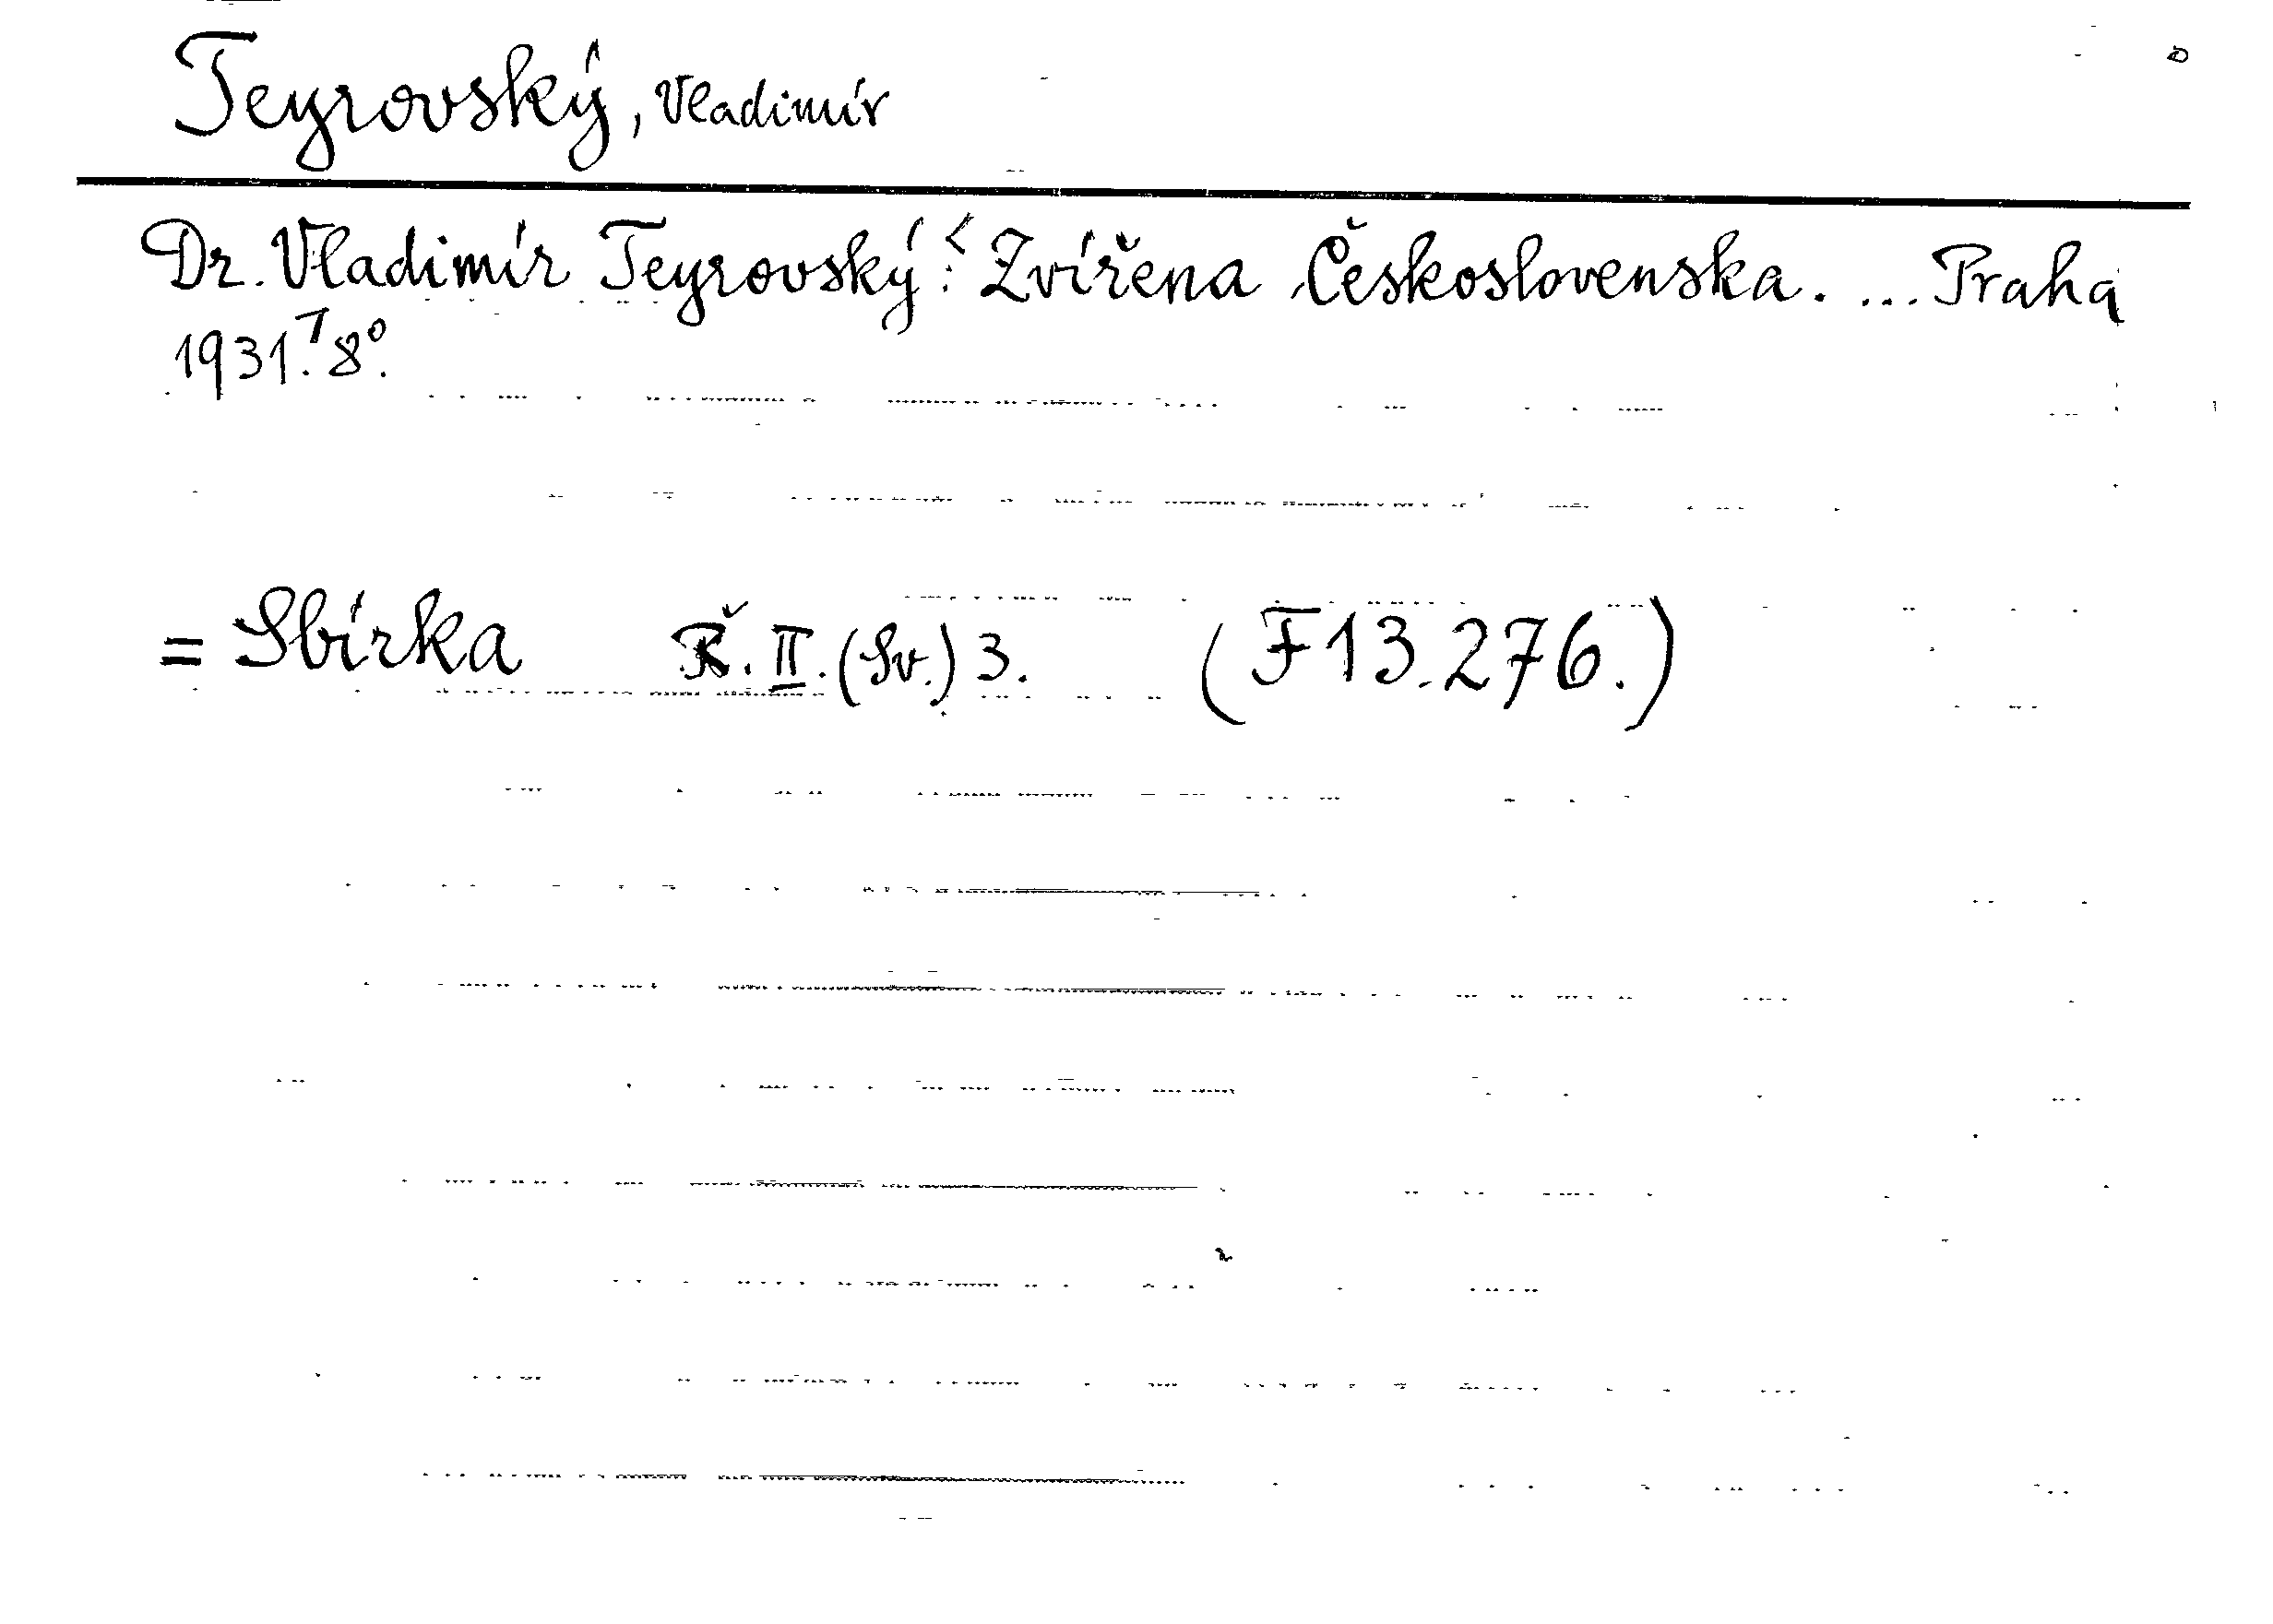 Teyrovský, Vladimír
Dr. Vladimír Teyrovský: < Zvířena Československa. ... Praha
1931.⁊ 8°.
= Sbírka Ř. II. (Sv.) 3. (F 13.276.)